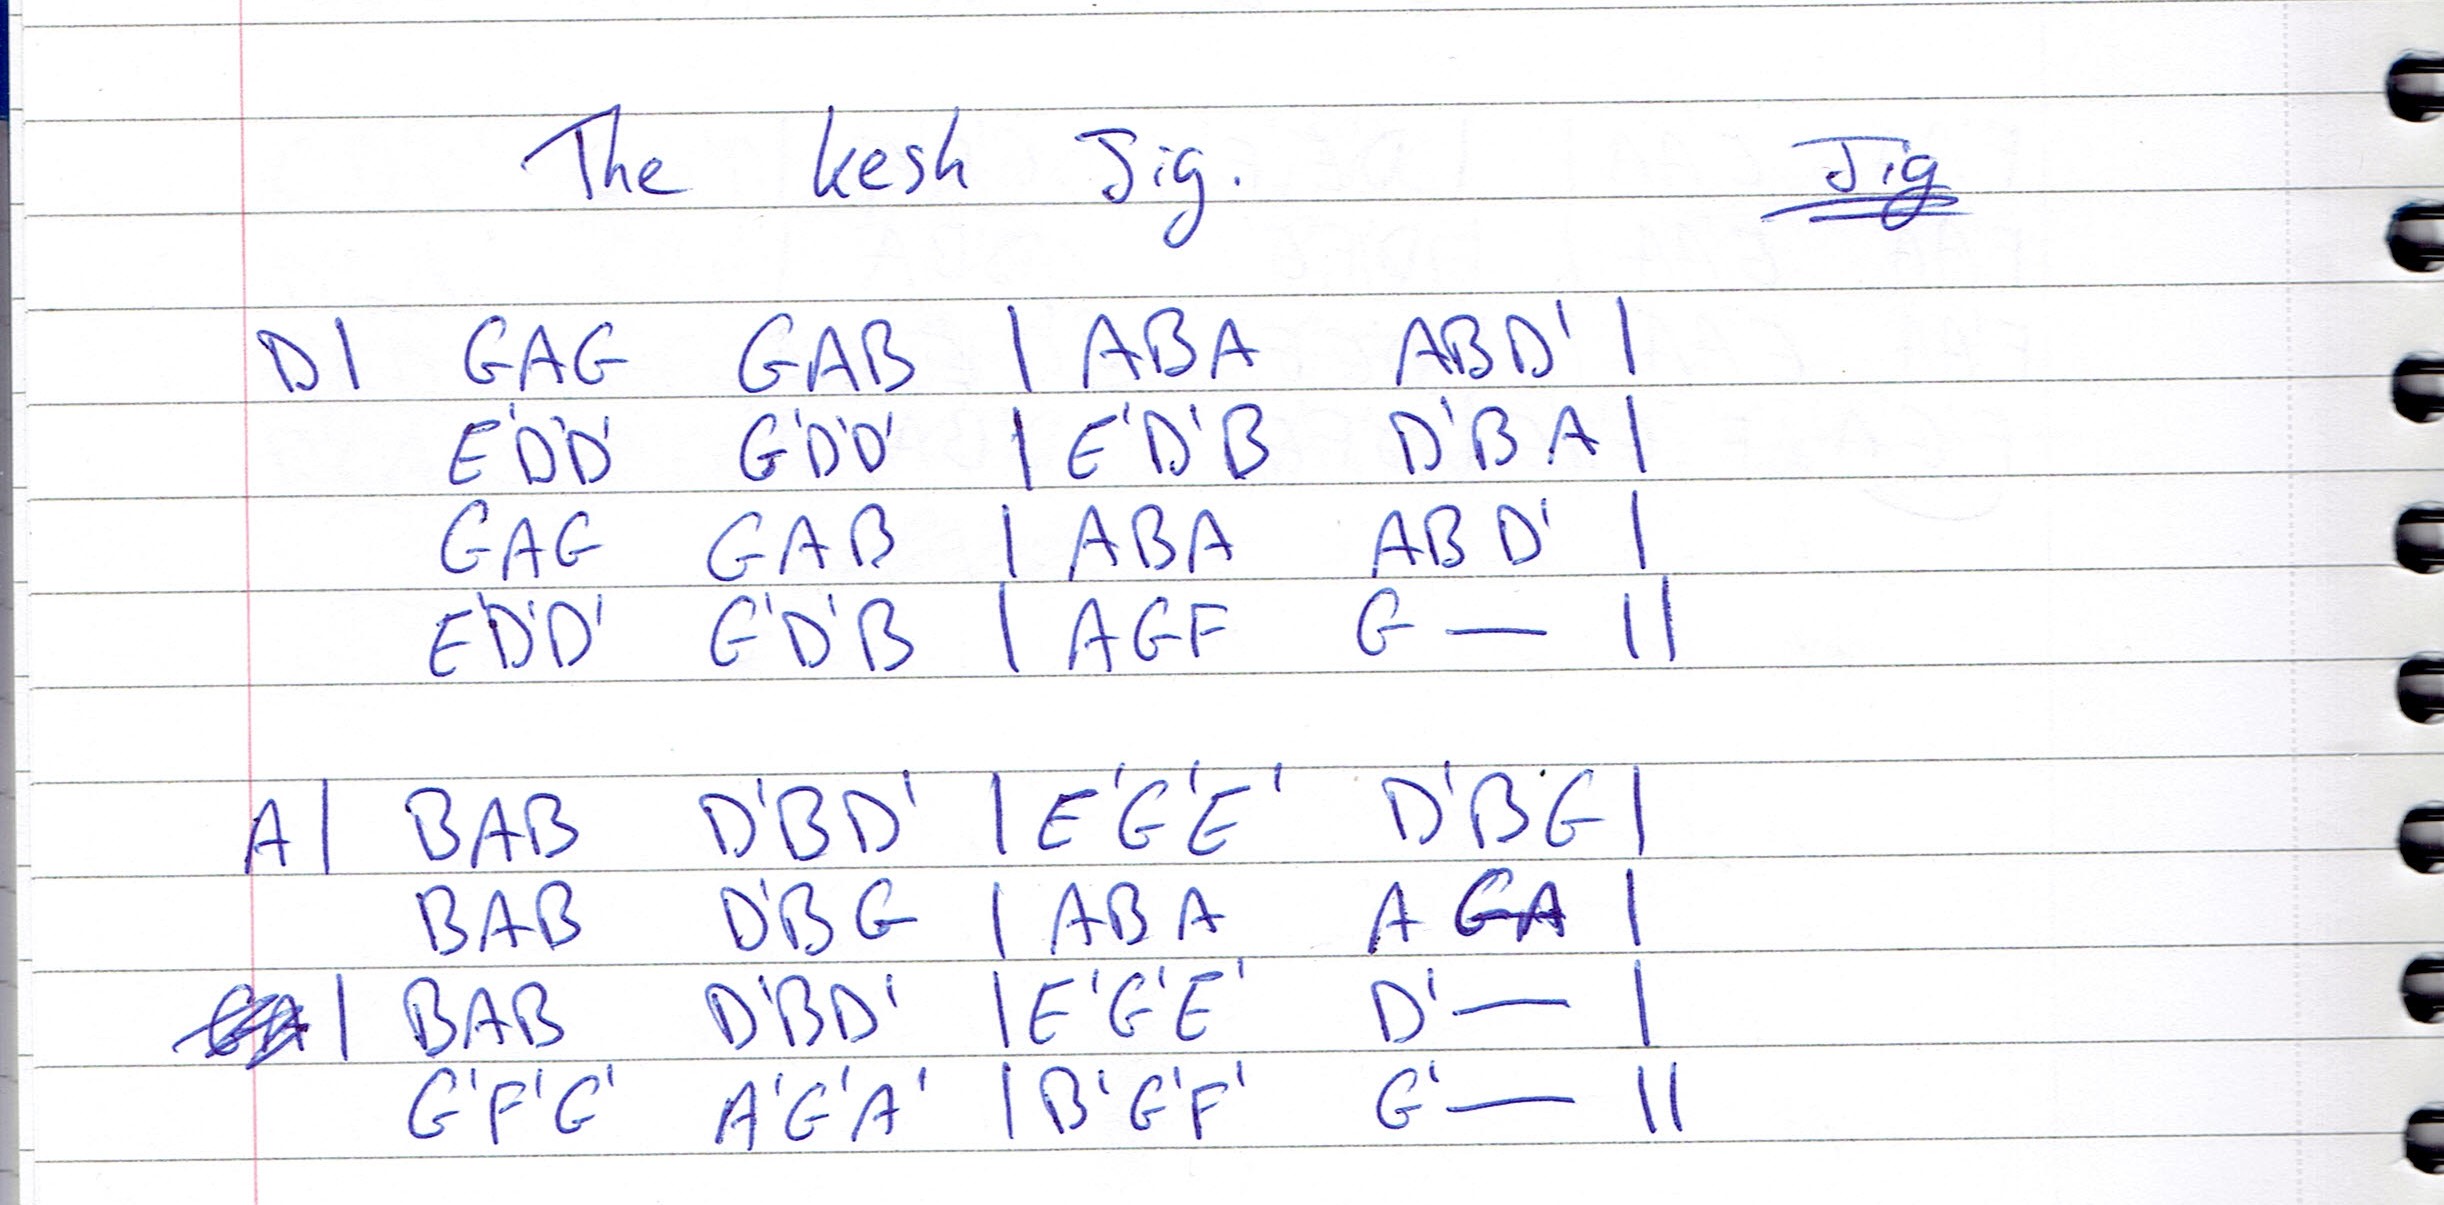 The Kesh Jig. Jig
D| GAG GAB | ABA ABD' |
E'D'D' G'D'D' | E'D'B D'BA |
GAG GAB | ABA ABD' |
E'D'D' G'D'B | AGF G — ||
A| BAB D'BD' | E'G'E' D'BG |
BAB D'BG | ABA AGA |
| BAB D'BD' | E'G'E' D' — |
G'F'G' A'G'A' | B'G'F' G' — ||